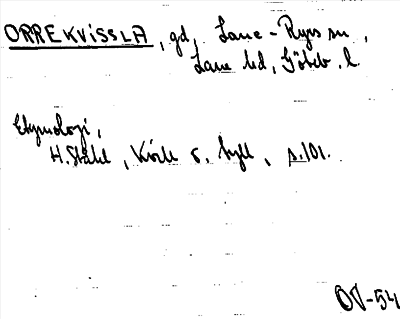 ORREKVISSLA, gd, Lane-Ryrs sn,
Lane hd, Göteb. l.
Etymologi,
H. Ståhl, Kvill o. tyll, s. 101.
OV-54